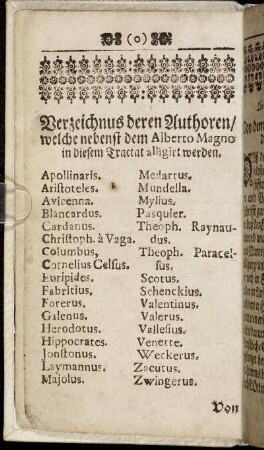 (o)
Verzeichnus deren Authoren/
welche nebenst dem Alberto Magno
in diesem Tractat alligirt werden.
Apollinaris.
Aristoteles.
Avicenna.
Blancardus.
Cardanus.
Christoph. à Vega.
Columbus,
Cornelius Celsus.
Euripides.
Fabritius,
Forerus,
Galenus,
Herodotus.
Hippocrates.
Jonstonus.
Laymannus,
Majolus.
Medartus.
Mundella.
Mylius.
Pasquier.
Theoph. Raynau-
dus.
Theoph. Paracel-
sus.
Scotus.
Schenckius.
Valentinus.
Valerus.
Vallesius.
Venette.
Weckerus.
Zacutus.
Zwingerus.
Von